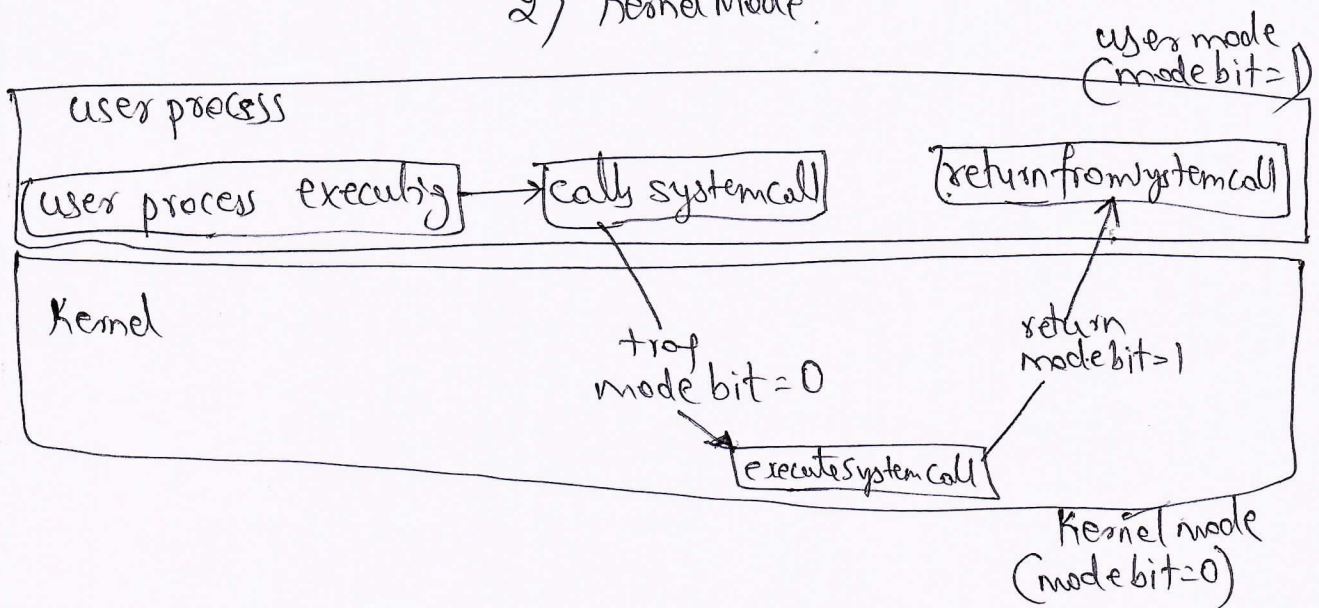 2) Kernel Mode.
user mode
(mode bit=1)
user process
user process executig
calls systemcall
returnfromsystemcall
Kernel
trap
mode bit=0
return
modebit=1
executesystemcall
Kernel mode
(modebit=0)